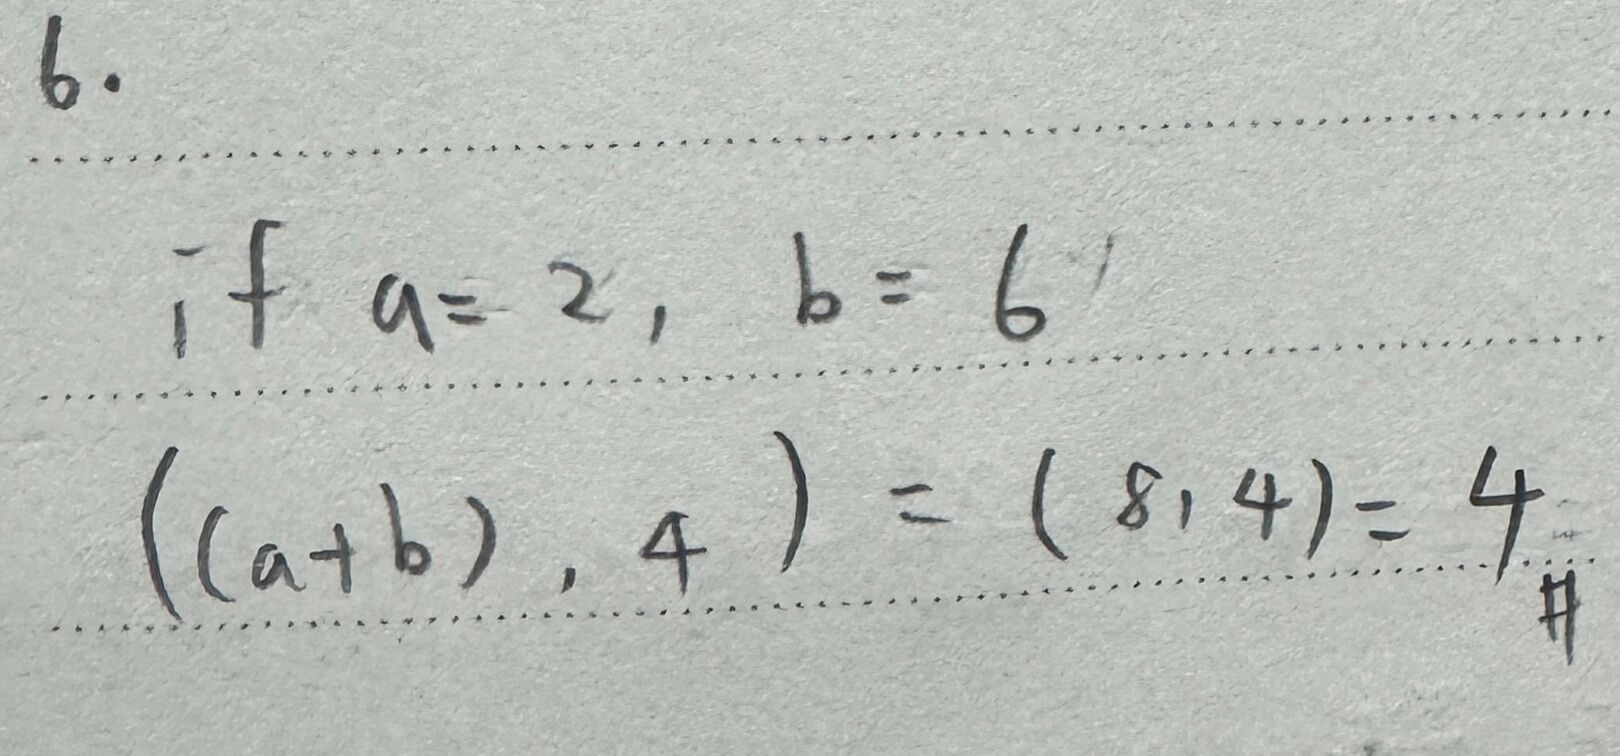 6.
if a = 2, b = 6
((a+b), 4) = (8, 4) = 4 #